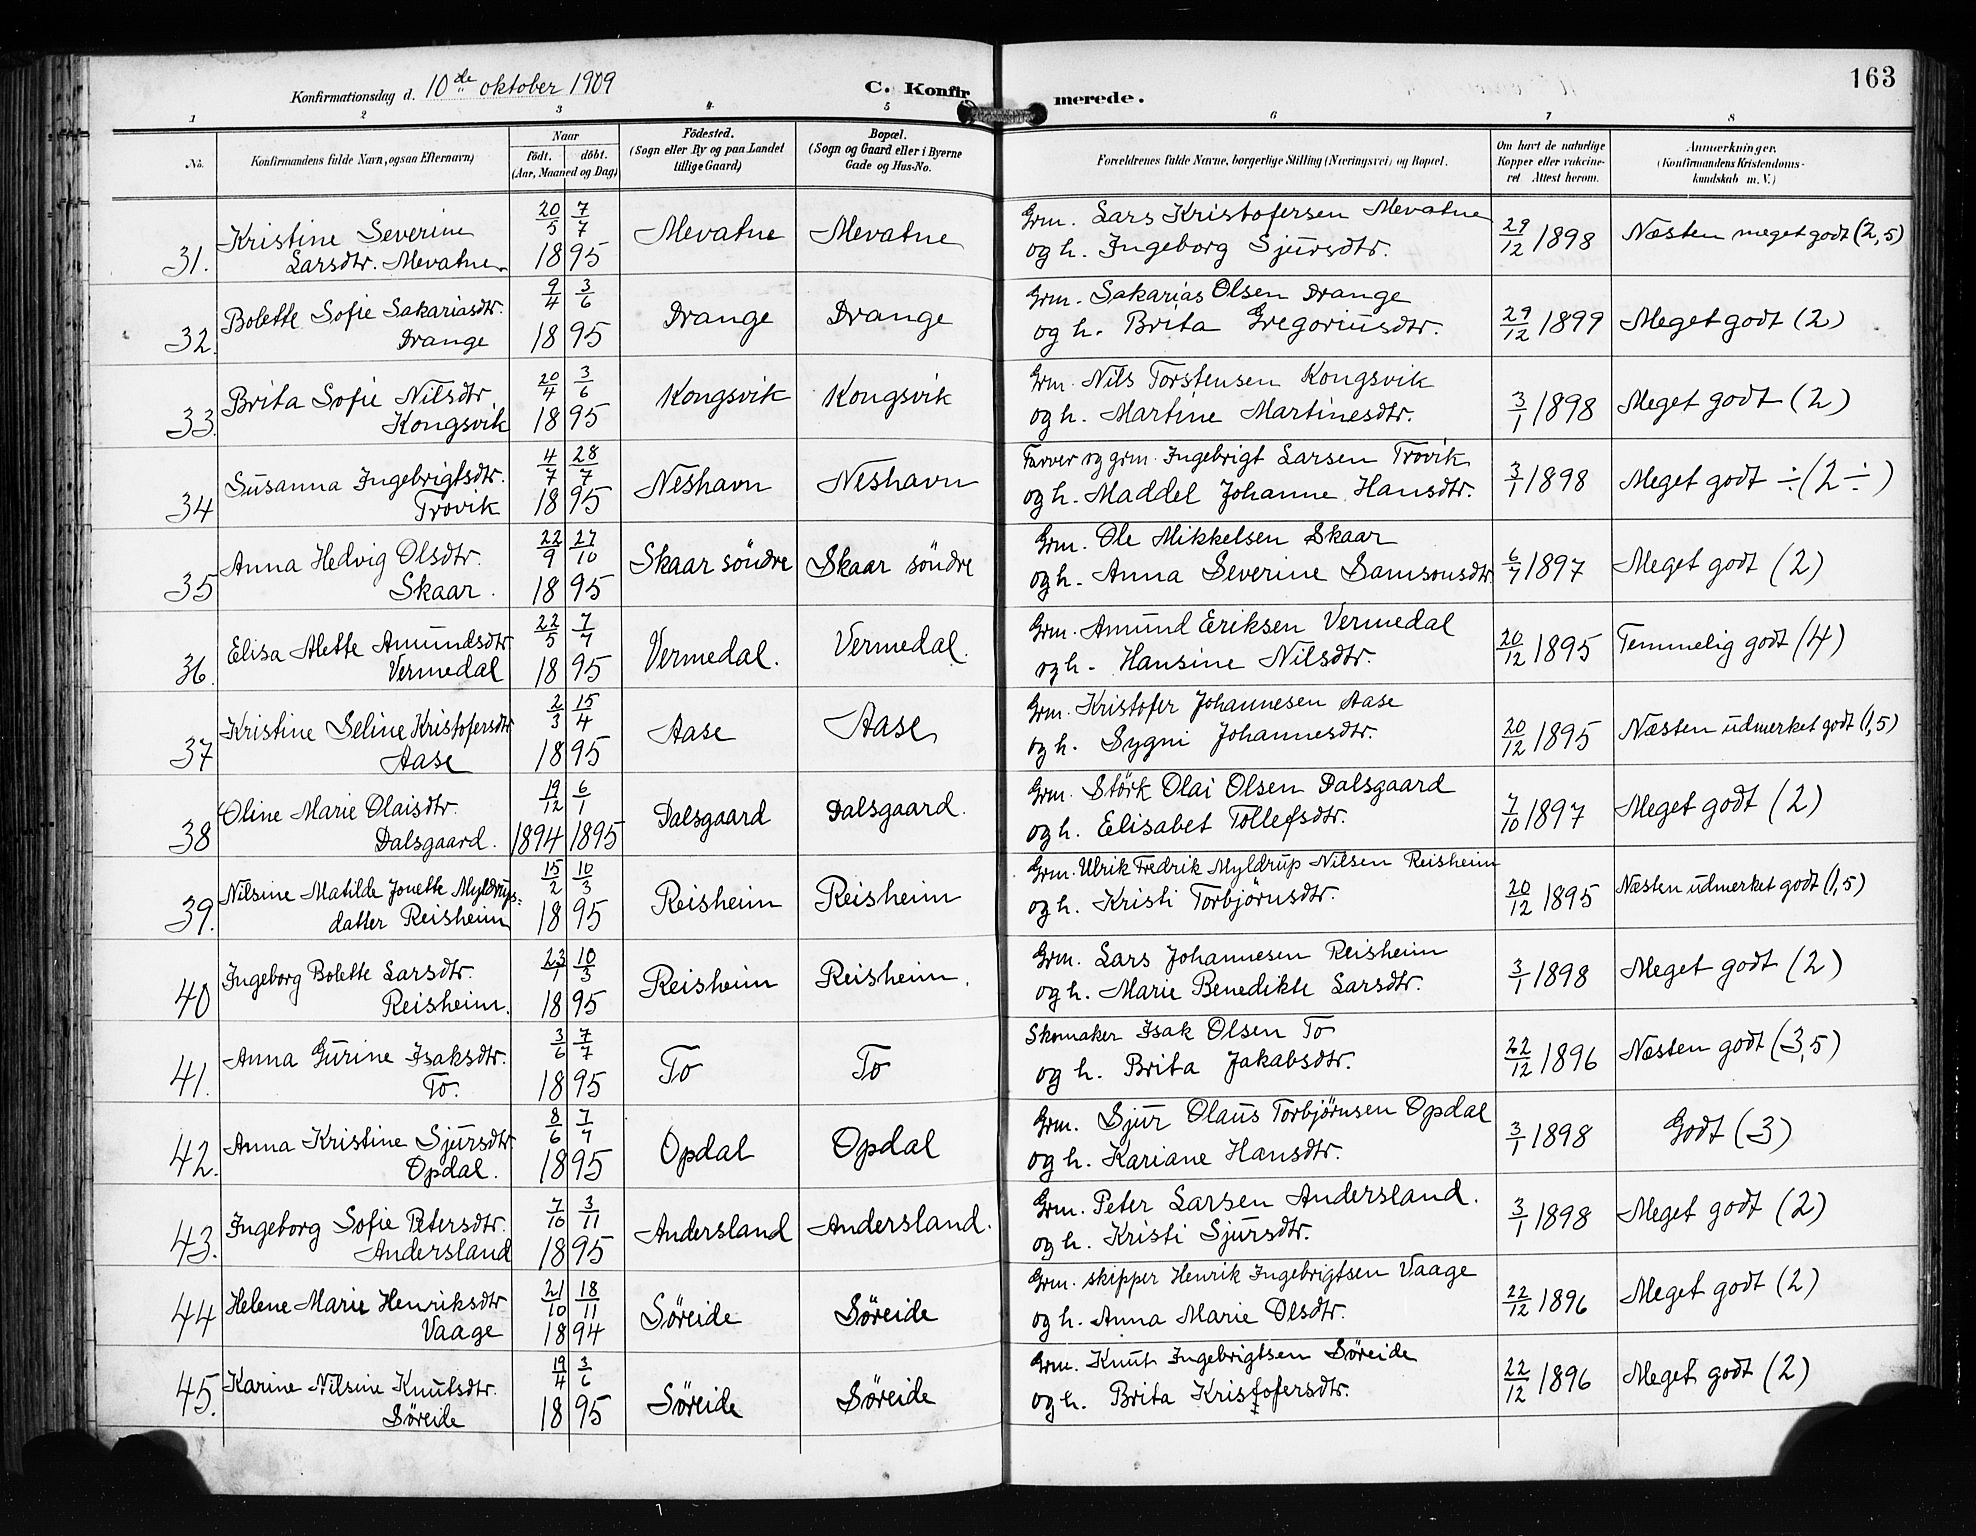 163
Konfirmationsdag d. 10de oktober 1909
C. Konfirmerede.
1 2 3 4 5 6 7 8
No.
Konfirmandens fulde Navn, ogsaa Efternavn)
Naar
födt. döbt.
(Aar, Maaned og Dag)
Födested.
(Sogn eller By og paa Landet
tillige Gaard)
Bopæl.
(Sogn og Gaard eller i Byerne
Gade og Hus-No.
Forældrenes fulde Navne, borgerlige Stilling (Næringsvei) og Bopæl.
Om havt de naturlige
Kopper eller vakcine-
ret Attest herom.
Anmærkninger.
(Konfirmandens Kristendoms-
kundskab m. V.)
31. Kristine Severine Larsdtr. Mevatne 20/5 1895 7/7 95 Mevatne Mevatne Grm. Lars Kristofersen Mevatne
og h. Ingeborg Sjursdtr. 29/12 1898 Næsten meget godt (2,5)
32. Bolette Sofie Sakariasdtr. Drange 9/4 1895 3/6 95 Drange Drange Grm. Sakarias Olsen Drange
og h. Brita Gregoriusdtr. 29/12 1899 Meget godt (2)
33. Brita Sofie Nilsdtr Kongsvik 20/4 1895 3/6 95 Kongsvik Kongsvik Grm. Nils Torstensen Kongsvik
og h. Martine Martinesdtr. 3/1 1898 Meget godt (2)
34 Susanna Ingebrigtsdtr. Trovik 4/7 1895 28/7 95 Neshavn Neshavn Farver og grm. Ingebrigt Larsen Trovik
og h. Maddel Johanne Hansdtr. 3/1 1898 Meget godt ÷ (2 ÷)
35 Anna Hedvig Olsdtr. Skaar. 22/9 1895 27/10 95 Skaar söndre Skaar söndre Grm. Ole Mikkelsen Skaar
og h. Anna Severine Samsonsdtr 6/7 1897 Meget godt (2)
36. Elisa Alette Amundsdtr Vermedal 22/5 1895 7/7 95 Vermedal. Vermedal. Grm. Amund Eriksen Vermedal
og h. Hansine Nilsdtr. 20/12 1895 Temmelig godt (4)
37 Kristine Seline Kristofersdtr Aase 2/3 1895 15/4 95 Aase Aase Grm. Kristofer Johannesen Aase
og h. Sygni Johannesdtr. 20/12 1895 Næsten udmerket godt (1,5)
38 Oline Marie Olaisdtr. Dalsgaard. 19/12 1894 6/1 1895 Dalsgaard Dalsgaard. Grm. Störk Olai Olsen Dalsgaard
og h. Elisabet Tollefsdtr. 7/10 1897 Meget godt (2)
39. Nilsine Matilde Jonette Myldrups=
datter Reisheim 15/2 1895 10/3 95 Reisheim Reisheim Grm. Ulrik Fredrik Myldrup Nilsen Reisheim
og h. Kristi Torbjörnsdtr. 20/12 1895 Næsten udmerket godt (1,5)
40 Ingeborg Bolette Larsdtr. Reisheim. 23/1 1895 10/3 95 Reisheim Reisheim. Grm. Lars Johannesen Reisheim
og h. Marie Benedikte Larsdtr. 3/1 1898 Meget godt (2)
41. Anna Gurine Isaksdtr. To. 3/6 1895 7/7 95 To To Skomaker Isak Olsen To
og h. Brita Jakabsdtr. 22/12 1896 Næsten godt (3,5)
42. Anna Kristine Sjursdtr. Opdal. 8/6 1895 7/7 95 Opdal Opdal Grm. Sjur Olaus Torbjörnsen Opdal
og h. Kariane Hansdtr. 3/1 1898 Godt (3)
43. Ingeborg Sofie Petersdtr. Andersland 7/10 1895 3/11 95 Andersland Andersland. Grm. Peter Larsen Andersland.
og h. Kristi Sjursdtr. 3/1 1898 Meget godt (2)
44 Helene Marie Henriksdtr Vaage 21/10 1894 18/11 94 Søreide Søreide Grm. skipper Henrik Ingebrigtsen Vaage
og h. Anna Marie Olsdtr. 22/12 1896 Meget godt (2)
45. Karine Nilsine Knutsdtr. Søreide 19/4 1895 3/6 95 Søreide Søreide Grm. Knut Ingebrigtsen Søreide
og h. Brita Kristofersdtr. 22/12 1896 Meget godt (2)